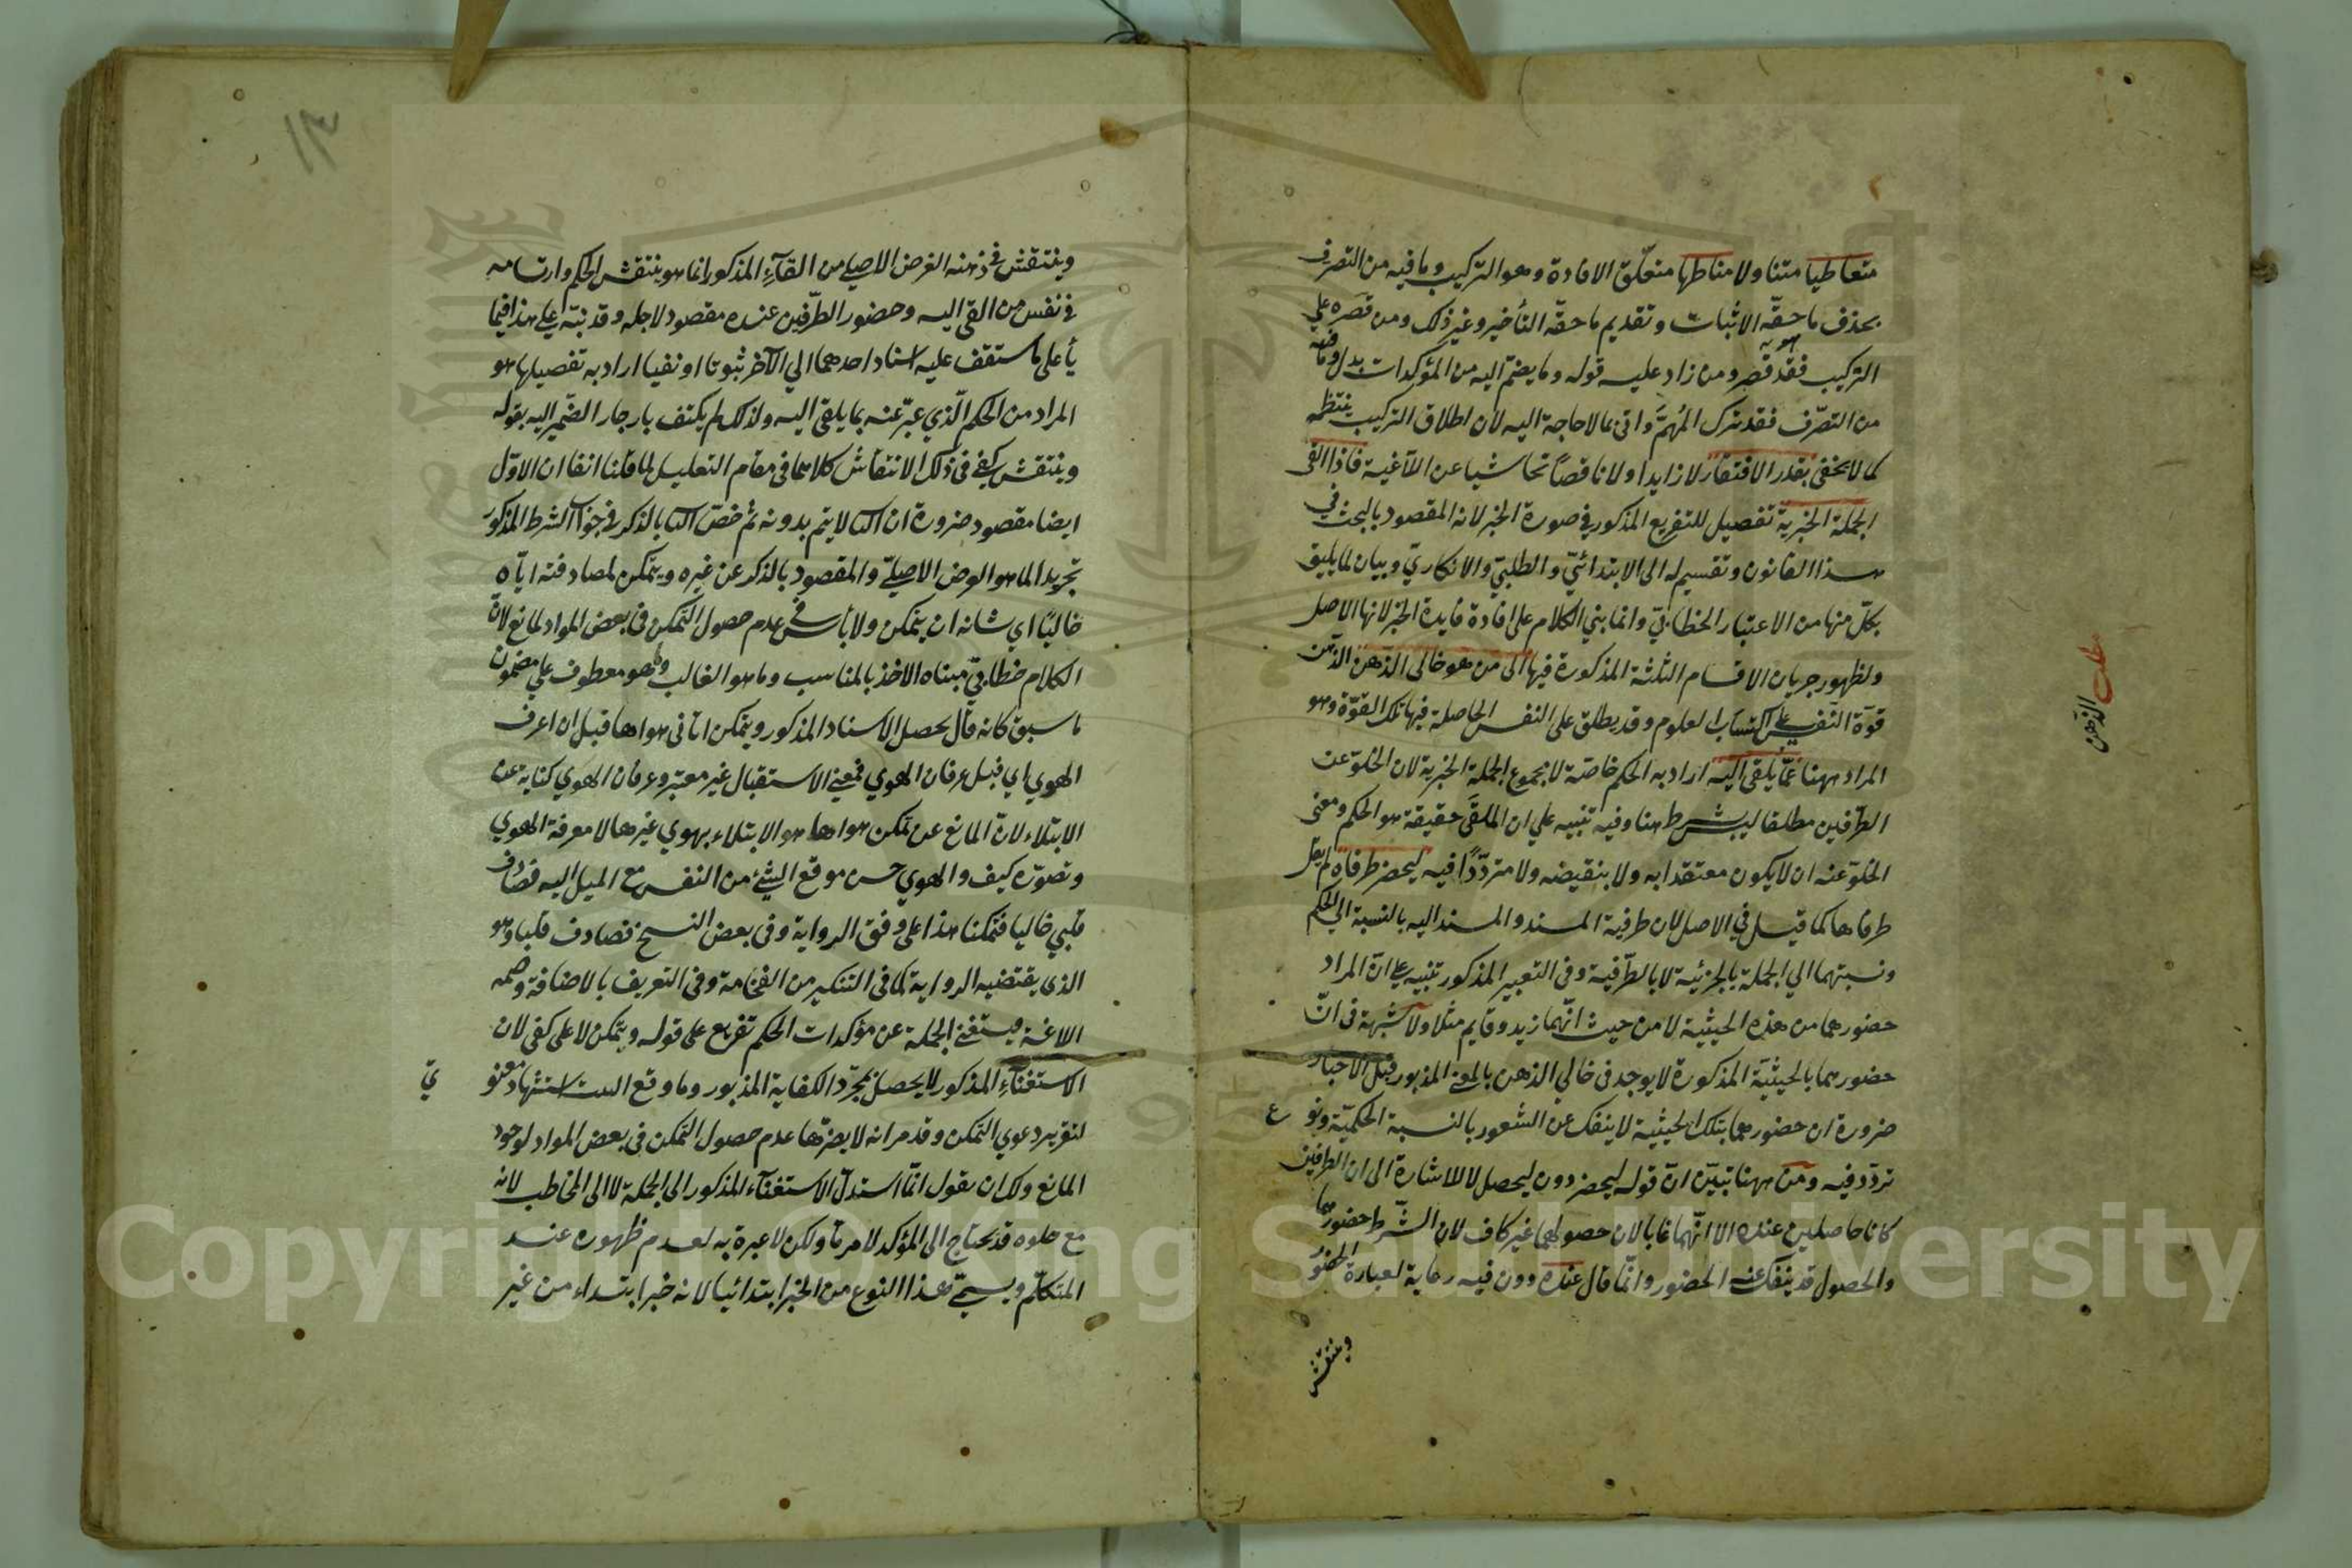 متعاطيا متناولا مناطها متعلّق الافادة وهو التركيب وما فيه من التصرف
بحذف ما حقّه الاثبات وتقديم ما حقّه التأخير وغير ذلك ومن قصَره على
التركيب فقد قصر ومن زاد عليه قوله وما يضمّ اليه من المؤكدات بدل وما فيه
من التصرّف فقد ترك المُهمَّ واتى بما لا حاجة اليه لان اطلاق التركيب ينتظمه
كما لا يخفى بقدر الافتقار لا زايدا ولا ناقصًا تحاشيا عن اللاغية فاذا القى
الجملة الخبرية تفصيل للتفريع المذكور في صورة الخبر لانه المقصود بالبحث في
هذا القانون وتقسيم له الى الابتدائيّ والطلبيّ والانكاريّ وبيان لما يليق
بكلّ منها من الاعتبار الخطابيّ وانما بني الكلام على افادة فايدة الخبر لانها الاصل
ولظهور جريان الاقسام الثلثة المذكورة فيها الى من هو خالي الذهن الذهن
قوّة النفس على اكتساب العلوم وقد يطلق على النفس الحاصلة فيها تلك القوّة وهو
المراد ههنا عمّا يلقى اليه اراد به الحكم خاصّة لا مجموع الجملة الخبرية لان الخلوّ عن
الطرفين مطلقا ليس بشرط هنا وفيه تنبيه على ان الملقَى حقيقة هو الحكم ومعنى
الخلوّ عنه ان لا يكون معتقدا به ولا بنقيضه ولا متردّدًا فيه ليحضر طرفاه لم يقل
طرفاها كما قيل في الاصل لان طرفية المسند والمسند اليه بالنسبة الى الحكم
ونسبتهما الي الجملة بالجزئية لا بالطّرفية وفى التعبير المذكور تنبيه على انّ المراد
حضورهما من هذه الحيثية لا من حيث انّهما زيد وقايم مثلا ولا شبهة فى انّ
حضورهما بالحيثية المذكورة لا يوجد فى خالي الذهن بالمعنى المذبور قبل الاخبار
ضرورة ان حضورهما بتلك الحيثية لا ينفك عن الشعور بالنسبة الحكميّة ونو ع
تردّد فيه ومن ههنا تبيّن انّ قوله ليحضر دون ليحصل لا للاشارة الى ان الطرفين
كانا حاصلين عنده الا انّهما غابا لان حصولهما غير كاف لان الشّرط حضورهما
والحصول قد ينفك عنه الحضور وانّما قال عنده دون فيه رعاية لعبارة الحضور
وينتقش
مطلب
الذهن
١٣
وينتقش في ذهنه الغرض الاصلي من القآءِ المذكور انما هو ينتقش الحكم وارتسامه
في نفس من القى اليه وحضور الطّرفين عنده مقصود لاجله وقد نبّه على هذا فيما
يأ على ما ستقف عليه اسناد احدهما الي الآخر ثبوتا او نفيا اراد به تفصيلها هو
المراد من الحكم الّذي عبّر عنه بما يلقى اليه ولذلك لم يكتف بارجاع الضمير اليه بقوله
وينتقش كيفى فى ذلك الانتقاش كلاهما فى مقام التعليل لما قلنا انفا ان الاوّل
ايضا مقصود ضرورة ان الثا لا يتم بدونه ثم خصّ الثا بالذكر في جواب الشرط المذكور
تجريدا لما هو الغرض الاصليّ والمقصود بالذكر عن غيره ويتمكن لمصادفته ايّاه
خاليًا اي شانه ان يتمكن ولا بأس في عدم حصول التمكن فى بعض المواد لمانع لانّ
الكلام خطابيّ مبناه الاخذ بالمناسب وما هو الغالب وهو معطوف على مضمون
ما سبق كانه قال يحصل الاسناد المذكور ويتمكن اتانى هواها قبل ان اعرف
الهوي اي قبل عرفان الهوي فمعنى الاستقبال غير معتبر وعرفان الهوي كناية عن
الابتلاء لانّ المانع عن تمكن هواها هو الابتلاء بهوي غيرها لا معرفة الهوي
وتصوّره كيف والهوي حسن موقع الشيْء من النفس مع الميل اليه فصادف
قلبي خاليا فتمكنا هذا على وفق الرواية وفى بعض النسخ فصادف قلبا وهو
الذى يقتضيه الرواية لما فى التنكير من الفخامة وفى التعريف بالاضافة وصمه
اللاغة فيستغنى الجملة عن مؤكدات الحكم تفريع على قوله ويتمكن لا على كفى لان
الاستغنآءِ المذكور لا يحصل بمجرّد الكفاية المذبور وما وقع البيت استشهاد معنو يّ
لتقرير دعوي التمكن وقد مر انه لا يضرّها عدم حصول التمكن فى بعض المواد لوجود
المانع ولك ان يقول انّما اسند الاستغنآء المذكور الى الجملة لا الى المخاطب لانه
مع خلوه قد يحتاج الى المؤكد لامر ما ولكن لا عبرة به لعدم ظهوره عند
المتكلّم ويسمّى هذا النوع من الخبر ابتدائيا لانه خبر ابتداء من غير
Copyright © King Saud University